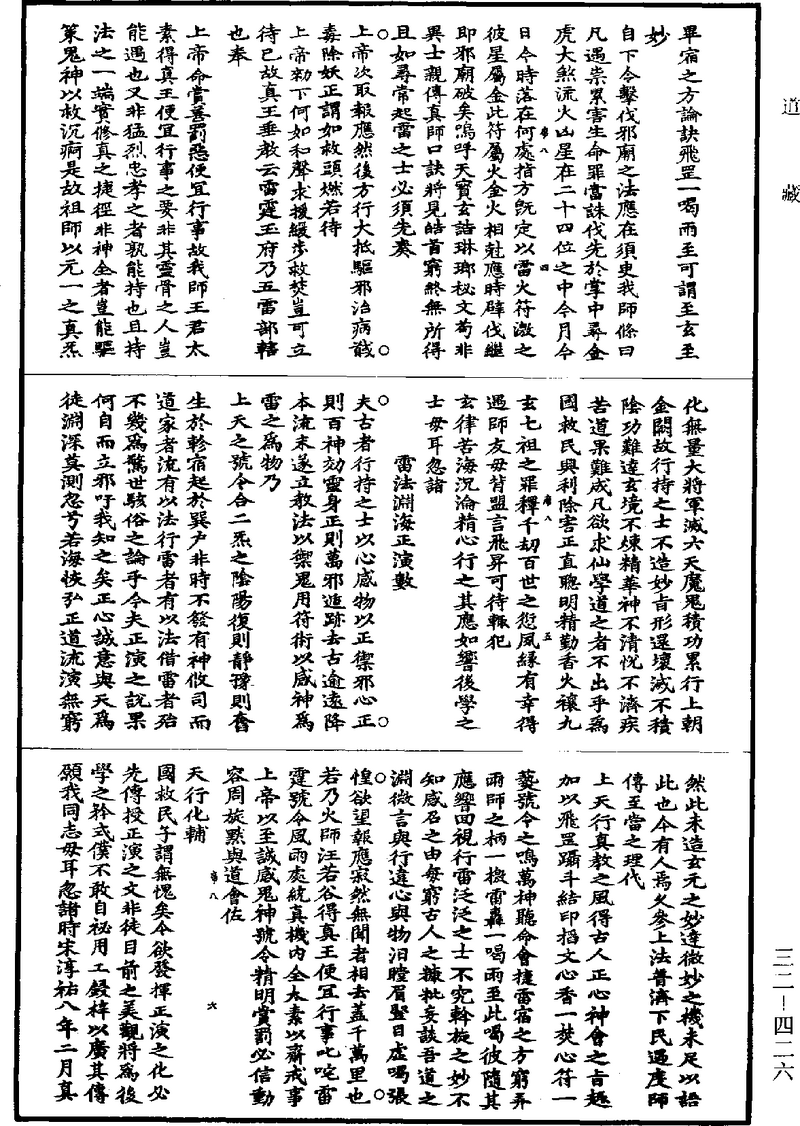 道藏
畢宿之方論訣飛罡一喝雨至可謂至玄至
妙
自下令擊伐邪廟之法應在須臾我師條曰
凡遇祟累害生命罪當誅伐先於掌中尋金
虎大煞流火凶星在二十四位之中今月今
日今時落在何處指方既定以雷火符激之
彼星屬金此符屬火金火相尅應時礔伐繼
即邪廟破矣嗚呼天寶玄誥琳瑯秘文苟非
異士親傳真師口訣將見皓首窮終無所得
且如尋常起雷之士必須先奏
上帝次取報應然後方行大抵驅邪治病戩
毒除妖正謂如救頭燃若待
上帝勑下何如和聲求援緩步救焚豈可立
待已故真王垂教云雷霆玉府乃五雷部轄
也奉
上帝命賞善罰惡便宜行事故我師王君太
素得真王便宜行事之要非其靈骨之人豈
能遇也又非猛烈忠孝之者孰能持也且持
法之一端實修真之捷徑非神全者豈能驅
策鬼神以救沉痾是故祖師以元一之真炁
化無量大將軍滅六天魔鬼積功累行上朝
金闕故行持之士不造妙旨形還壞滅不積
陰功難達玄境不煉精華神不清恱不濟疾
苦道果難成凡欲求仙學道之者不出乎為
國救民興利除害正直聰明精勤香火禳九
玄七祖之罪釋千劫百世之愆夙緣有幸得
遇師友毋背盟言飛昇可待輒犯
玄律苦海沉淪精心行之其應如響後學之
士毋耳忽諸
雷法淵海正演數
夫古者行持之士以心感物以正禦邪心正
則百神効靈身正則萬邪遁跡去古逾遠降
本流末遂立教法以禦鬼用符術以感神為
雷之為物乃
上天之號令合二炁之陰陽復則靜豫則奮
生於軫宿起於巽户非時不發有神攸司而
道家者流有以法行雷者有以法借雷者殆
不幾為驚世駭俗之論乎今夫正演之說果
何自而立邪吁我知之矣正心誠意與天為
徒淵深莫測忽兮若海恢弘正道流演無窮
然此未造玄元之妙達微妙之機未足以語
此也今有人焉久參上法普濟下民過度師
傳至當之理代
上天行真教之風得古人正心神會之旨趣
加以飛罡躡斗結印搯文心香一焚心符一
爇號令之鳴萬神聽命會捷雷宿之方窮弄
雨師之柄一撥雷轟一喝雨至此喝彼隨其
應響回視行雷泛泛之士不究斡旋之妙不
知感召之由每窮古人之糠粃妄談吾道之
淵微言與行違心與物汩瞠眉豎目虛喝張
惶欲望報應寂然無聞者相去盖千萬里也
若乃火師汪若谷得真王便宜行事叱咤雷
霆號令風雨處統真機內全太素以齋戒事
上帝以至誠感鬼神號令精明賞罰必信動
容周旋默與道會佐
天行化輔
國救民予謂無愧矣今欲發揮正演之化必
先傳授正演之文非徒目前之美觀將為後
學之矜式僕不敢自祕用工鋟梓以廣其傳
願我同志毋耳忽諸時宋淳祐八年二月真
三二-四二六